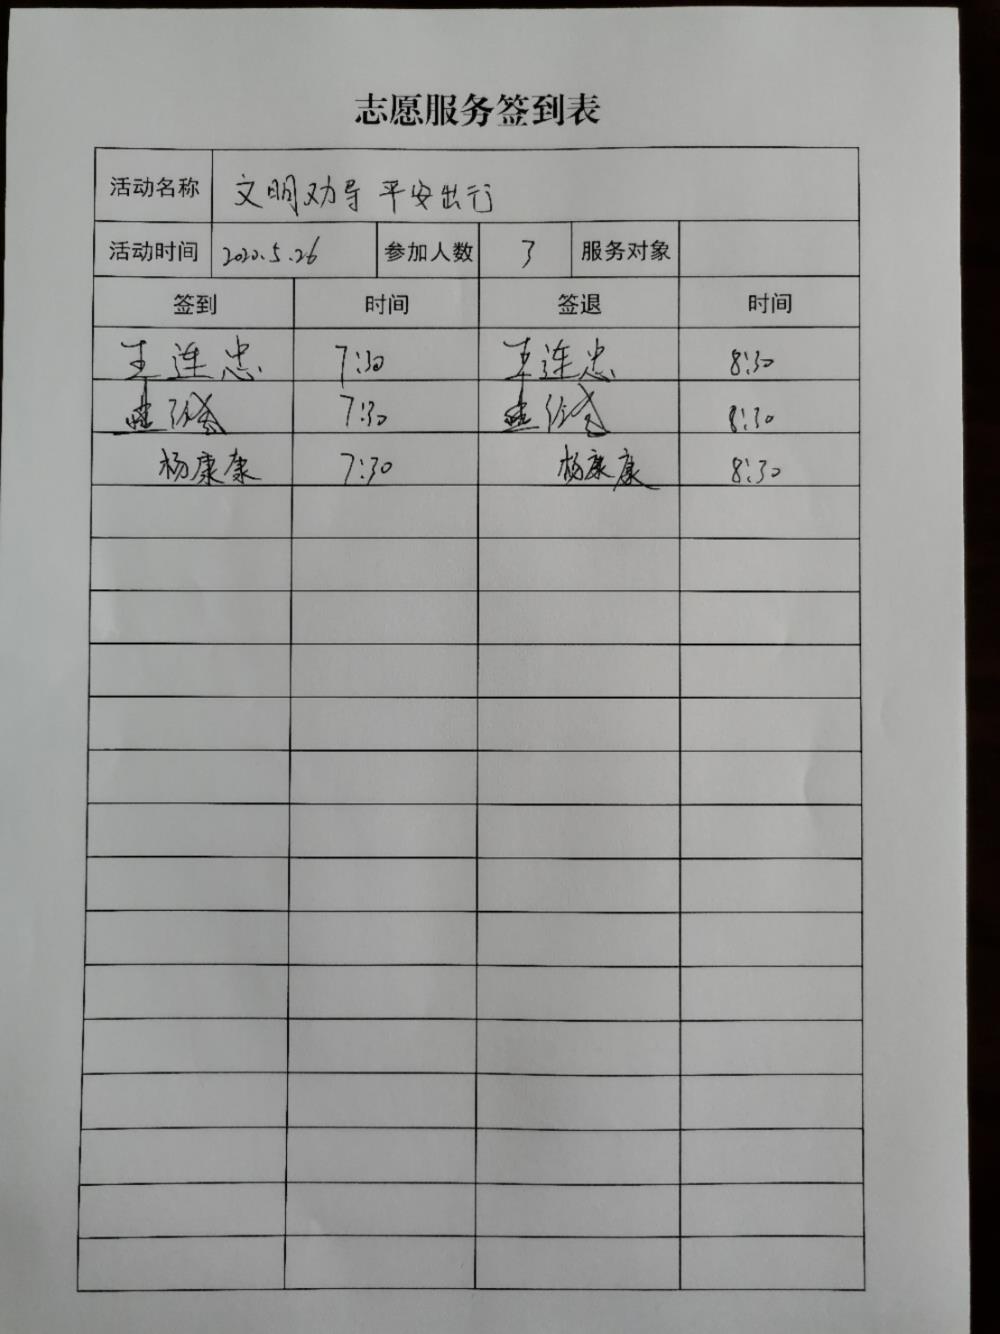 志愿服务签到表
活动名称 文明劝导 平安出行
活动时间 2020.5.26 参加人数 3 服务对象
签到 时间 签退 时间
王连忠 7:30 王连忠 8:30
7:30 8:30
杨康康 7:30 杨康康 8:30